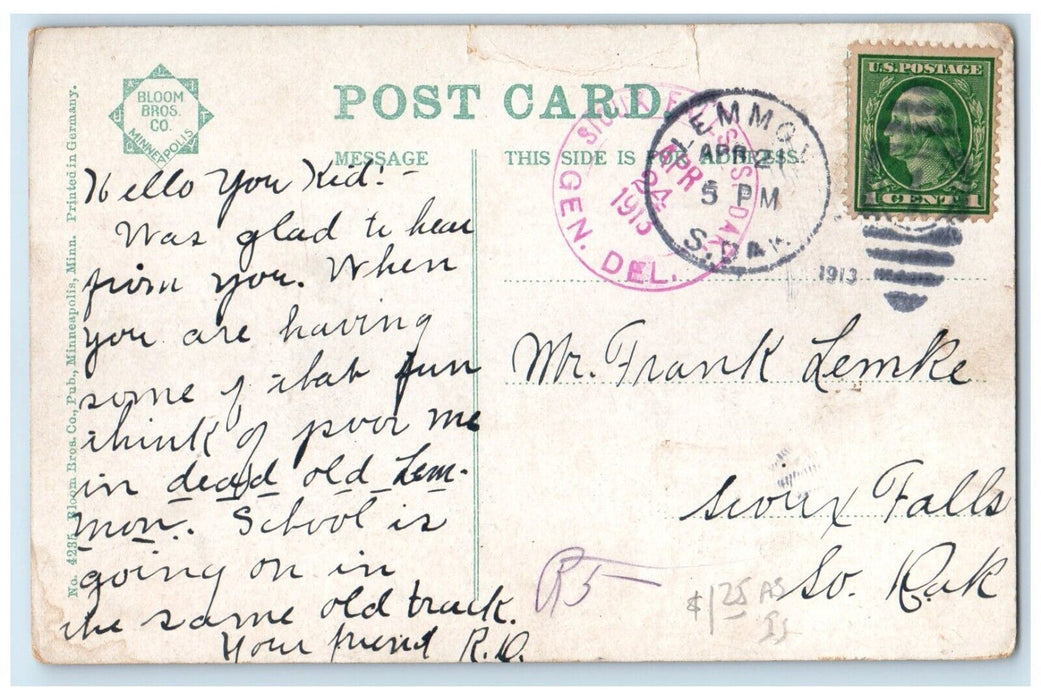 BLOOM
BROS.
CO.
MINNEAPOLIS
No. 4235 Bloom Bros. Co., Pub., Minneapolis, Minn. Printed in Germany.
POST CARD.
MESSAGE
THIS SIDE IS FOR ADDRESS.
U.S. POSTAGE
1 CENT 1
LEMMON
APR 2
5 PM
S. DAK.
1913
SIOUX FALLS S. DAK.
APR
24
1913
GEN. DEL.
Hello You Kid! -
Was glad to hear
from you. When
you are having
some of that fun
think of poor me
in dead old Lem-
mon. School is
going on in
the same old track.
Your friend R.O.
Mr. Frank Lemke
Sioux Falls
So. Dak
$1 25 AS
IS